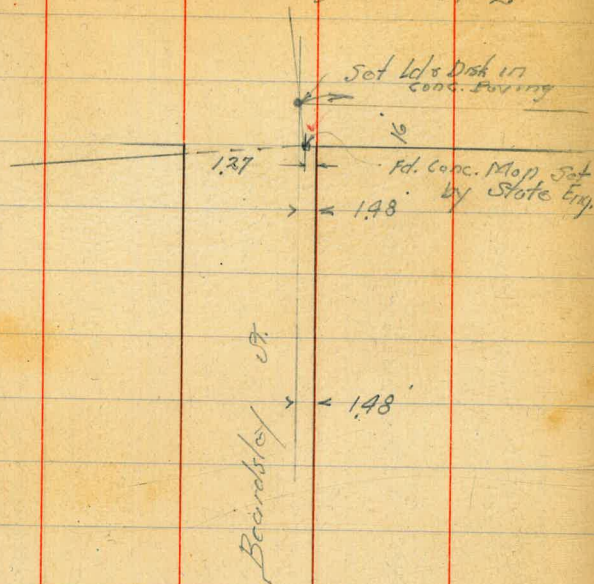 Set Ld & Disk in
Conc. Paving
1.27
16
Fd. Conc. Mon. Set
by State Eng.
1.48'
1.48'
Beardsley St.